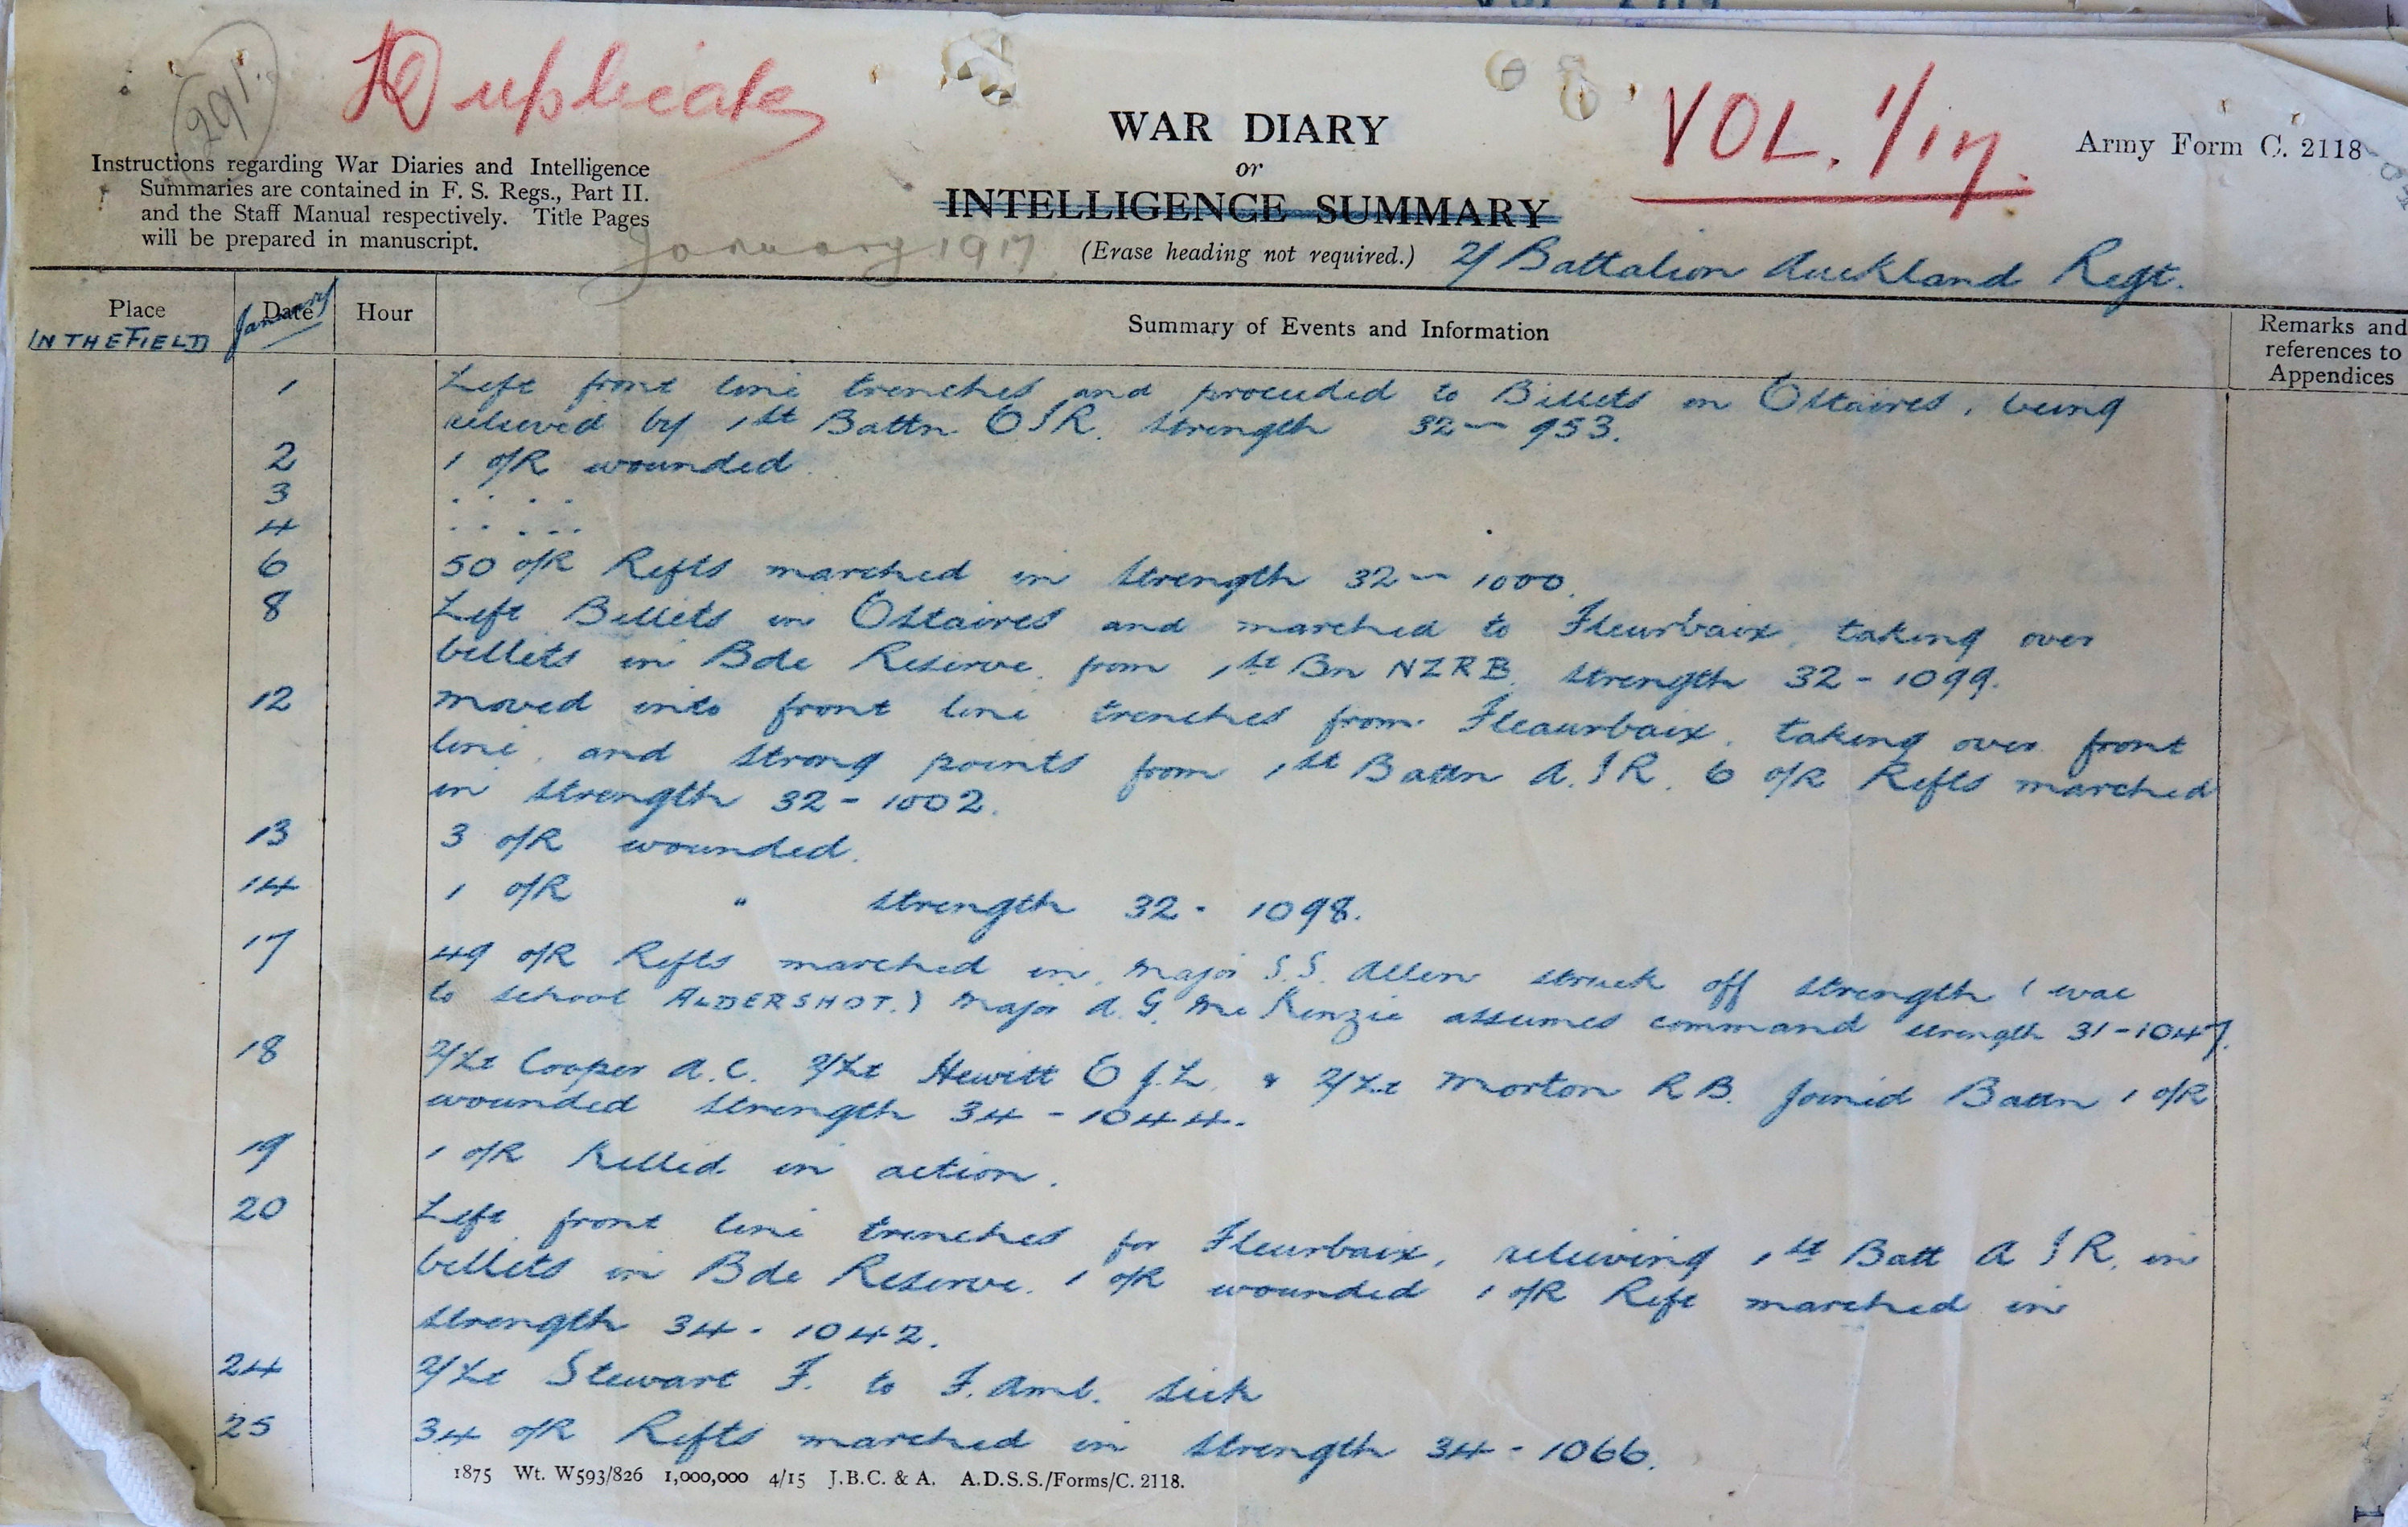 291.
Duplicate
VOL. 1/17.
WAR DIARY
or
INTELLIGENCE SUMMARY
(Erase heading not required.)
Army Form C. 2118
Instructions regarding War Diaries and Intelligence
Summaries are contained in F. S. Regs., Part II.
and the Staff Manual respectively. Title Pages
will be prepared in manuscript.
January 1917.
2/ Battalion Auckland Regt.
Place
Date
Hour
Summary of Events and Information
Remarks and
references to
Appendices
IN THE FIELD
January
1 Left front line trenches and proceeded to Billets in Estaires, being
relieved by 1st Battn O I R. Strength 32 — 953.
2 1 O/R wounded.
3 . . . .
4 . . . . .
6 50 O/R Refts marched in Strength 32 — 1000.
8 Left Billets in Estaires and marched to Fleurbaix, taking over
billets in Bde Reserve from 1st Bn NZRB. Strength 32 - 1099.
12 Moved into front line trenches from Fleaurbaix, taking over front
line, and strong points from 1st Battn A.I R. 6 O/R Refts marched
in Strength 32 - 1002.
13 3 O/R wounded.
14 1 O/R " Strength 32 - 1098.
17 49 O/R Refts marched in. Major S.S. Allen struck off strength (evac
to school ALDERSHOT.) Major A. G. Mc Kenzie assumes command strength 31-1047.
18 2/Lt Cooper A.C. 2/Lt Hewitt E J.L. & 2/Lt Morton R B. Joined Battn 1 O/R
wounded Strength 34 - 1044.
19 1 O/R Killed in action.
20 Left front line trenches for Fleurbaix, relieving 1st Batt A I R, in
billets in Bde Reserve. 1 O/R wounded 1 O/R Reft marched in
Strength 34 - 1042.
24 2/Lt Stewart F. to F. Amb. Sick
25 34 O/R Refts marched in Strength 34 - 1066.
1875 Wt. W593/826 1,000,000 4/15 J.B.C. & A. A.D.S.S./Forms/C. 2118.